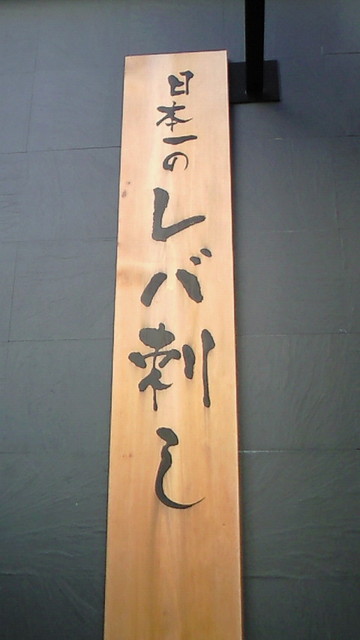 日本一の
レバ刺し